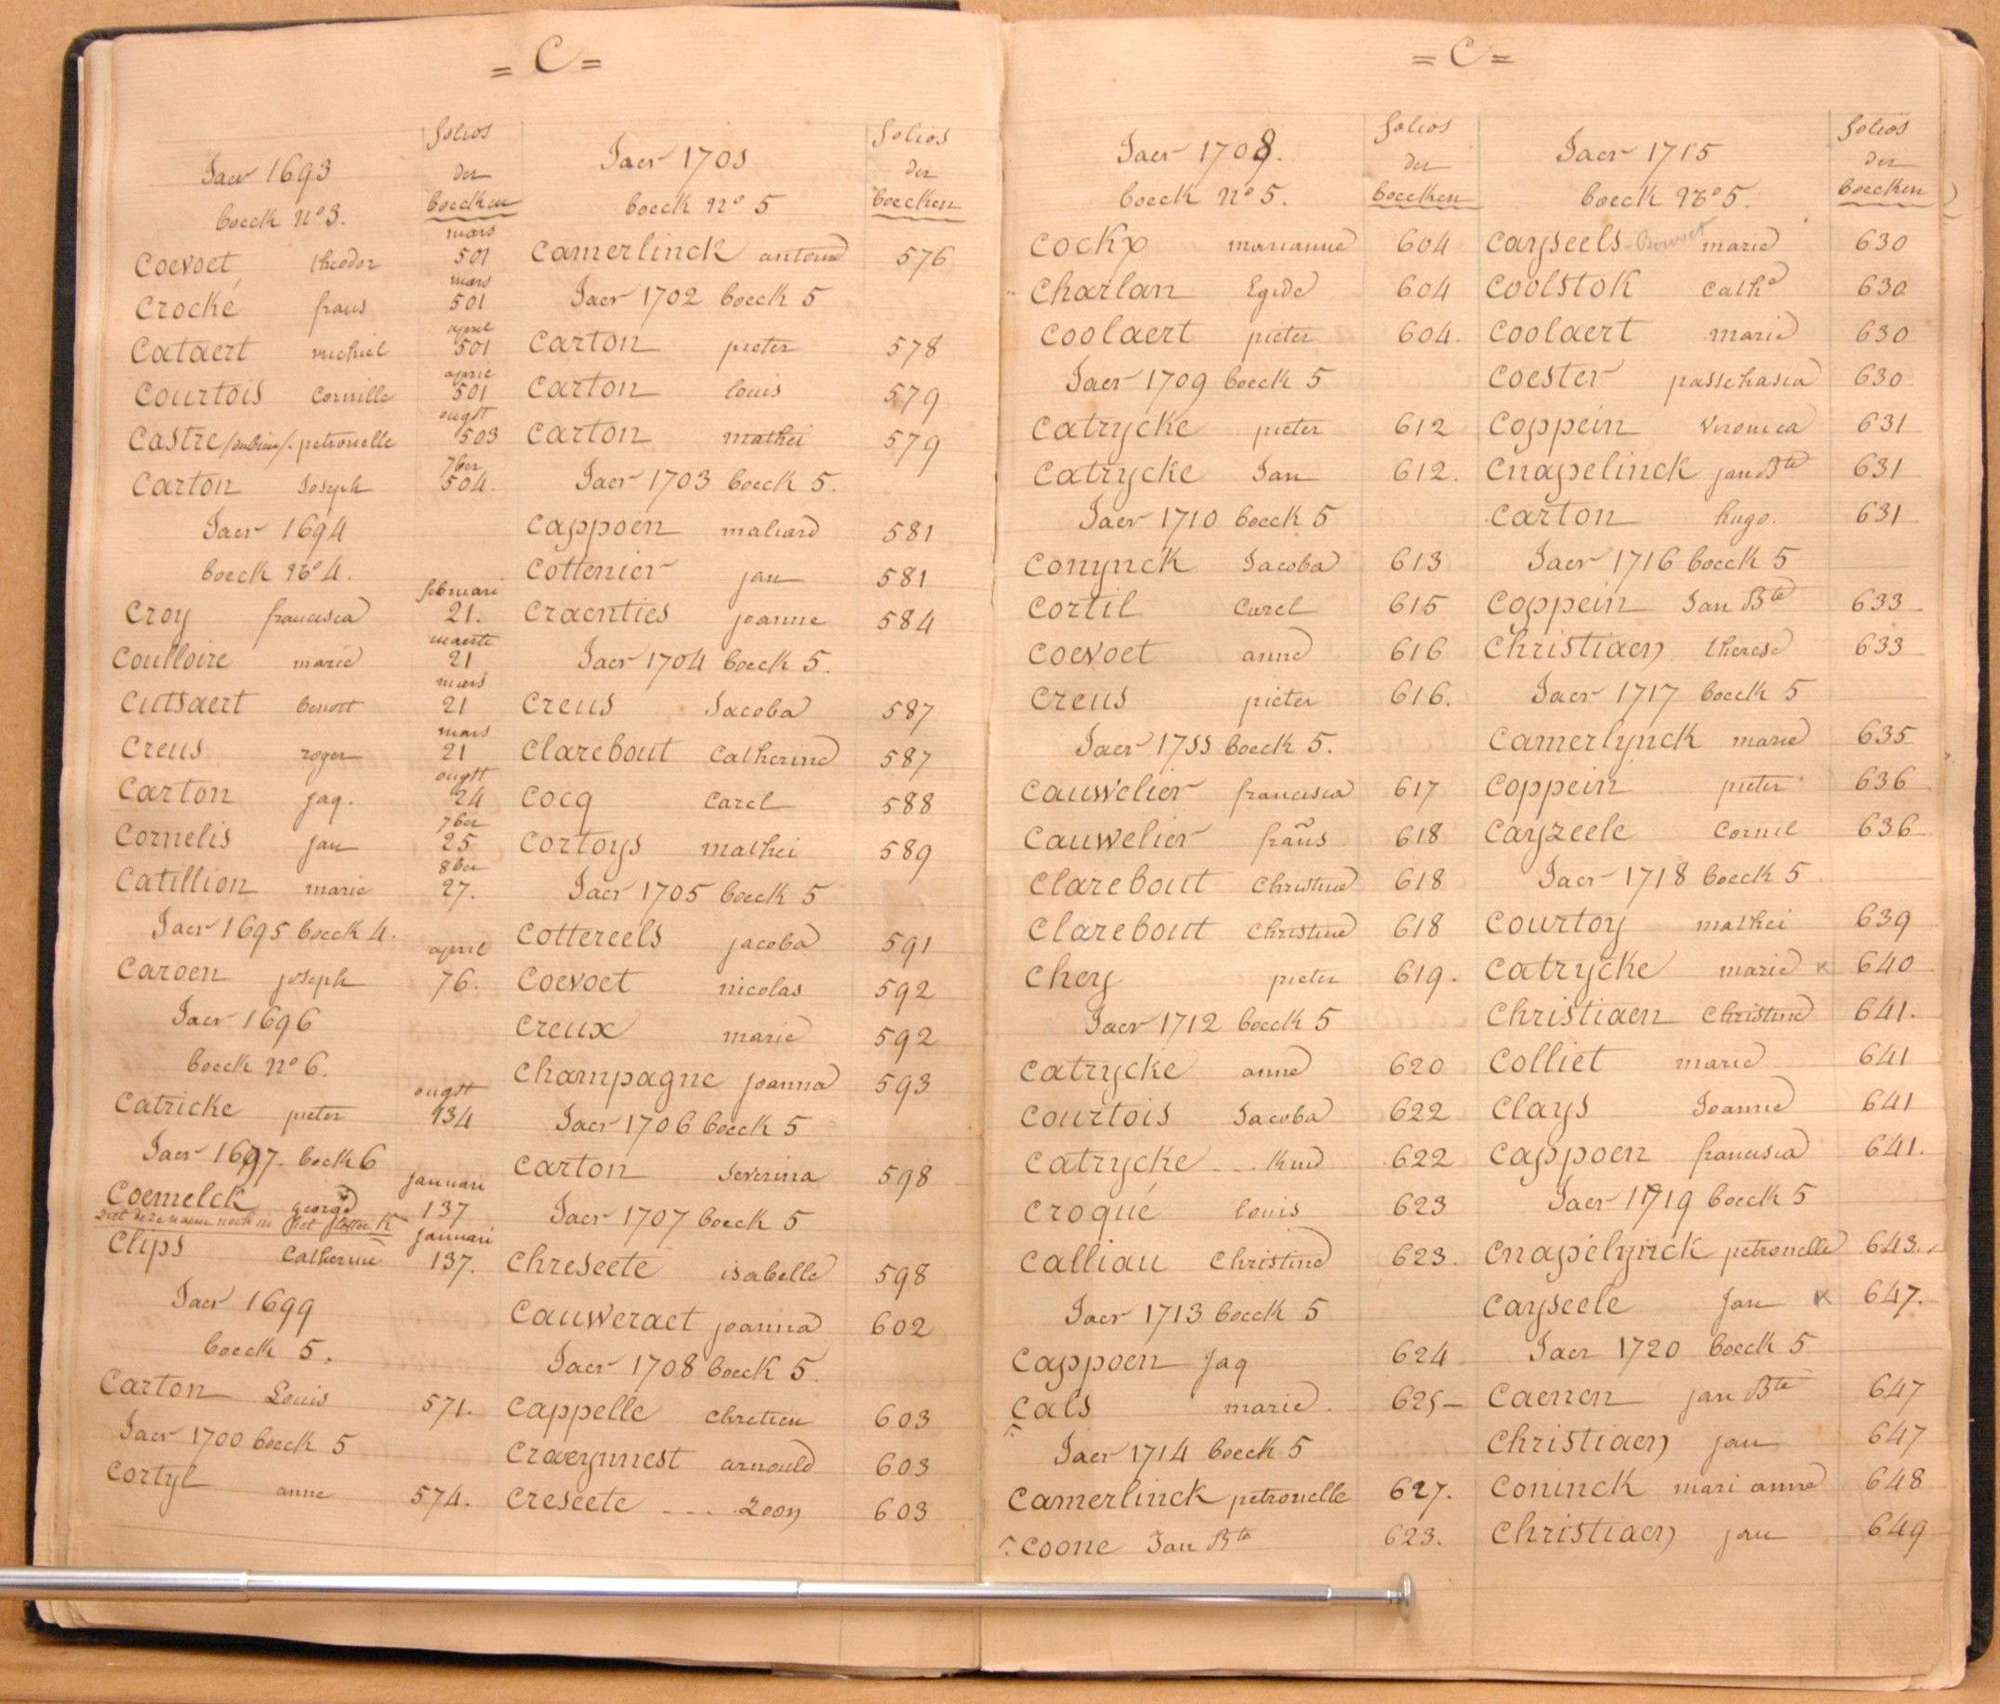 = C =
Jaer 1693
boeck no 3.
folios
der
boecken
Coevoet theodor mars 501
Crocké frans mars 501
Cataert michiel april 501
Courtois Cornille april 501
Castre petronelle ougst 503
Carton Joseph 7ber 504.
Jaer 1694
boeck no 4.
Croy francisca februari 21.
Coulloire marie maerte 21
Cutsaert benoit mars 21
Creus roger mars 21
Carton jaq. ougst 24
Cornelis jan 7ber 25
Catillion marie 8ber 27.
Jaer 1695 boeck 4.
Caroen joseph april 76.
Jaer 1696
boeck no 6.
Catricke pieter ougst 134
Jaer 1697. boeck 6
Coemelck george januari 137
Ziet letter K
Clips Catherine januari 137.
Jaer 1699
boeck 5.
Carton Louis 571.
Jaer 1700 boeck 5
Cortyl anne 574.
Jaer 1701
boeck no 5
folios
der
boecken
Camerlinck antoine 576
Jaer 1702 boeck 5
Carton pieter 578
Carton louis 579
Carton mathei 579
Jaer 1703 boeck 5.
Cappoen maliard 581
Cottenier jan 581
Craenties joanne 584
Jaer 1704 boeck 5.
Creus Jacoba 587
Clarebout Catherine 587
Cocq Carel 588
Cortoys mathei 589
Jaer 1705 boeck 5
Cottereels jacoba 591
Coevoet nicolas 592
Creux marie 592
Champagne joanna 593
Jaer 1706 boeck 5
Carton Severina 598
Jaer 1707 boeck 5
Chreseete isabelle 598
Cauweraet joanna 602
Jaer 1708 boeck 5.
Cappelle chretien 603
Craeynnest arnould 603
Creseete .... Zoon 603
= C =
Jaer 1708.
boeck no 5.
folios
der
boecken
Cockx marianne 604
Charlan Egide 604
Coolaert pieter 604.
Jaer 1709 boeck 5
Catrycke pieter 612
Catrycke Jan 612.
Jaer 1710 boeck 5
Conynck Jacoba 613
Cortil Carel 615
Coevoet anne 616
Creus pieter 616.
Jaer 1711 boeck 5.
Cauwelier francisca 617
Cauwelier frañs 618
Clarebout Christine 618
Clarebout Christine 618
Chey pieter 619.
Jaer 1712 boeck 5
Catrycke anne 620
Courtois Jacoba 622
Catrycke ... kind 622
Croqué louis 623
Calliau Christine 623.
Jaer 1713 boeck 5
Cappoen Jaq 624
Cals marie. 625
Jaer 1714 boeck 5
Camerlinck petronelle 627.
Coone Jan Bte 623.
Jaer 1715
boeck no 5.
folios
der
boecken
Cayseels marie 630
Coolstok Cathe 630
Coolaert marie 630
Coester passchasia 630
Coppein Veronica 631
Cnapelinck jan Bte 631
Carton hugo. 631
Jaer 1716 boeck 5
Coppein Jan Bte 633
Christiaen therese 633
Jaer 1717 boeck 5
Camerlynck marie 635
Coppein pieter 636
Cayzeele Cornil 636
Jaer 1718 boeck 5
Courtoy mathei 639
Catrycke marie x 640
Christiaen Christine 641.
Colliet marie 641
Clays Joanne 641
Cappoen francisca 641.
Jaer 1719 boeck 5
Cnapelynck petronelle 643.
Cayseele Jan x 647.
Jaer 1720 boeck 5
Caenen jan Bte 647
Christiaen jan 647
Coninck mari anne 648
Christiaen jan 649